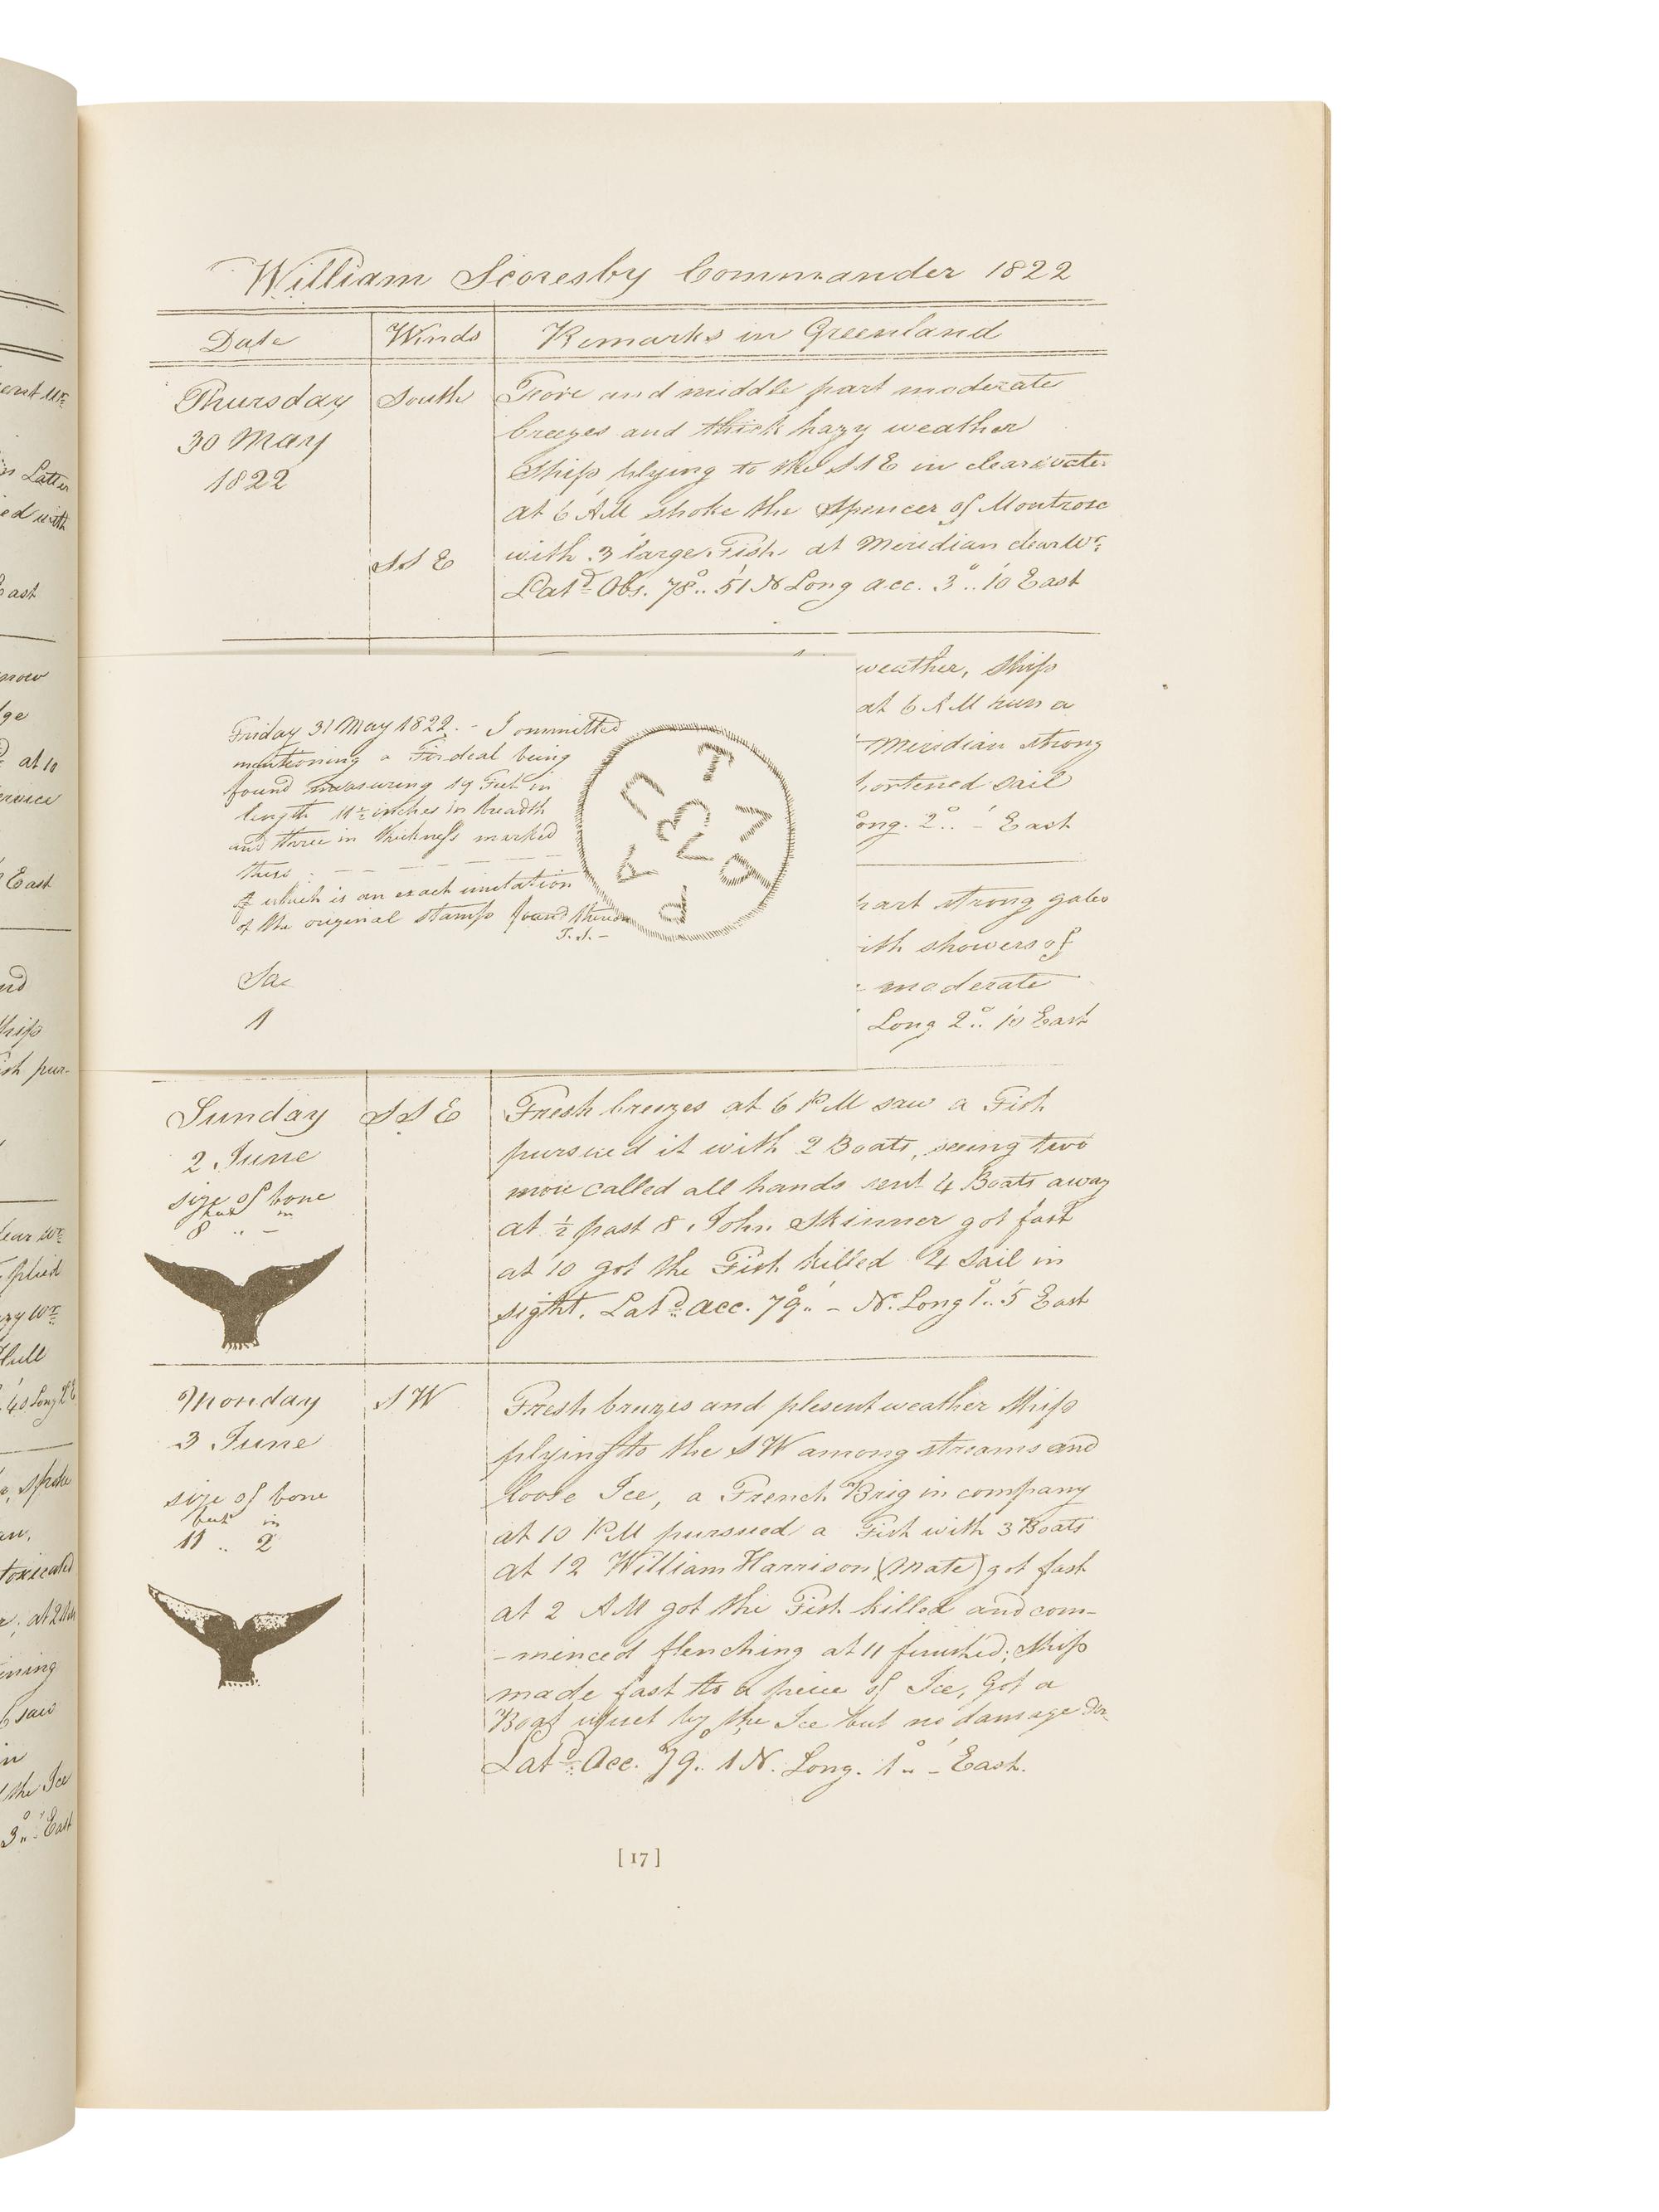 William Scoresby Commander 1822
Date Winds Remarks in Greenland
Thursday South Fore and middle part moderate
30 May breezes and thick hazy weather
1822 Ship plying to the SSE in clear water
at 6 AM spoke the Spencer of Montrose
SSE with 3 large Fish at Meridian clear Wr.
Latd Obs. 78°.. 51 N Long acc. 3°.. 10 East
weather, Ship
at 6 AM run a
Meridian strong
hortened sail
ong. 2°.. - East
part strong gales
ith showers of
moderate
Long 2°.. 10 East
Friday 31 May 1822. - I ommitted
mentioning a Fir deal being
found measuring 19 Feet in
length 11½ inches in breadth
and three in thickness marked
thus
of which is an exact imitation
of the original stamp found thereon
Sa
1
Sunday SSE Fresh breezes at 6 PM saw a Fish
2 June pursued it with 2 Boats, seeing two
size of bone more called all hands sent 4 Boats away
feet in
8 .. - at ½ past 8, John Skinner got fast
at 10 got the Fish killed 4 Sail in
sight. Latd acc. 79°.. - N. Long 1°.. 5 East
Monday SW Fresh breezes and plesent weather Ship
3 June plying to the SW among streams and
size of bone loose Ice, a French Brig in company
feet in
11 .. 2 at 10 PM pursued a Fish with 3 Boats
at 12 William Harrison (Mate) got fast
at 2 AM got the Fish killed and com-
-minced flenching at 11 finished; Ship
made fast to a peice of Ice, Got a
Boat upset by the Ice but no damage
Latd Acc. 79°.. 1 N. Long. 1°.. - East.
[17]
ast
now
at 10
East
Ship
Hull
saw
the Ice
3°.. East